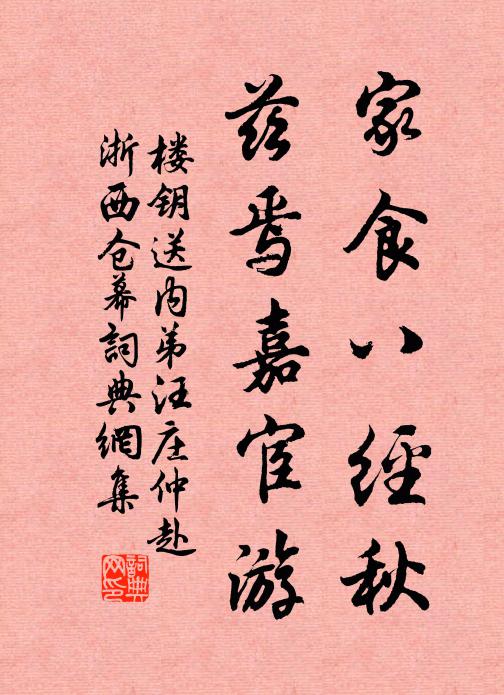 家食八經秋
茲焉嘉宦游
楼钥送内弟汪庄仲赴
浙西仓幕詞典網集
詞典网印